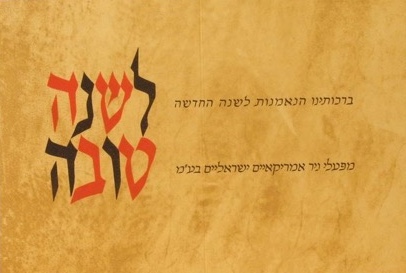 לשנה
טובה
ברכותינו הנאמנות לשנה החדשה
מפעלי ניר אמריקאיים ישראליים בע"מ